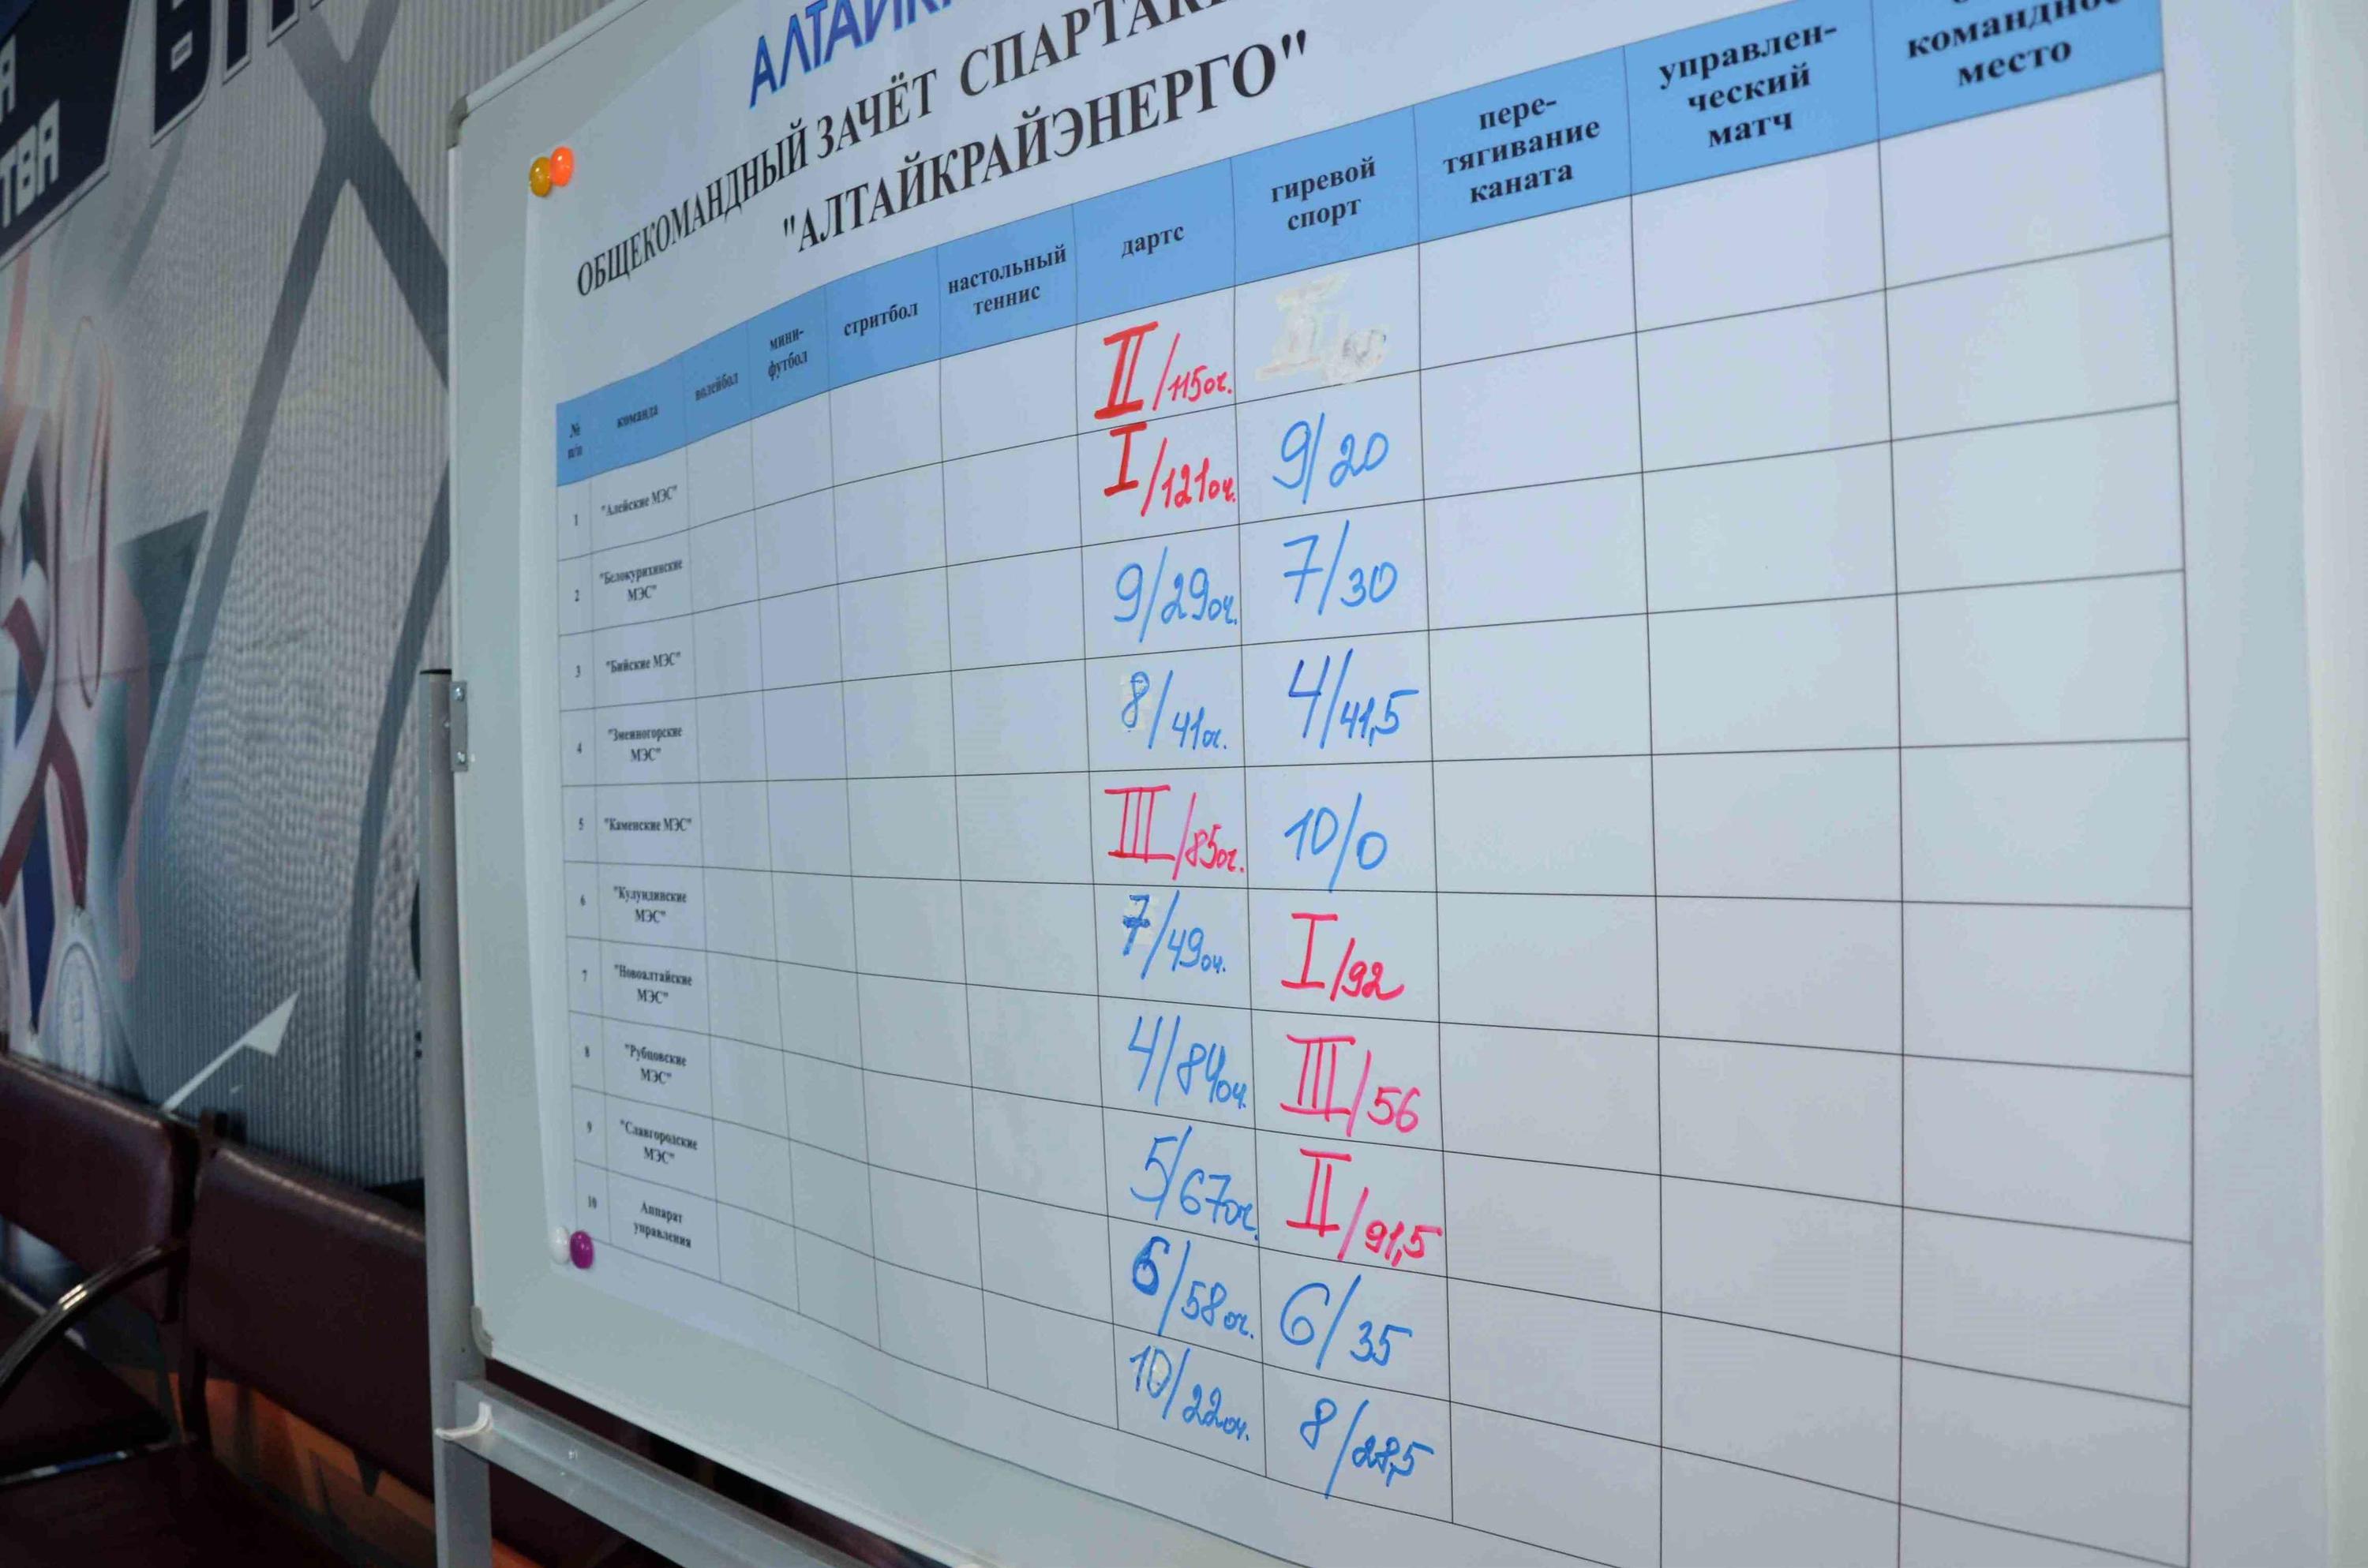 АЛТАЙК
ОБЩЕКОМАНДНЫЙ ЗАЧЁТ СПАРТАК
"АЛТАЙКРАЙЭНЕРГО"
№ п/п
команда
волейбол
мини-
футбол
стритбол
настольный
теннис
дартс
гиревой
спорт
пере-
тягивание
каната
управлен-
ческий
матч
командное
место
1 "Алейские МЭС" II/115оч.
2 "Белокурихинские
МЭС" I/121оч. 9/20
3 "Бийские МЭС" 9/29оч. 7/30
4 "Змеиногорские
МЭС" 8/41оч. 4/41,5
5 "Каменские МЭС" III/85оч. 10/0
6 "Кулундинские
МЭС" 7/49оч. I/92
7 "Новоалтайские
МЭС" 4/84оч. III/56
8 "Рубцовские
МЭС" 5/67оч. II/91,5
9 "Славгородские
МЭС" 6/58оч. 6/35
10 Аппарат
управления 10/22оч. 8/28,5
ТВА